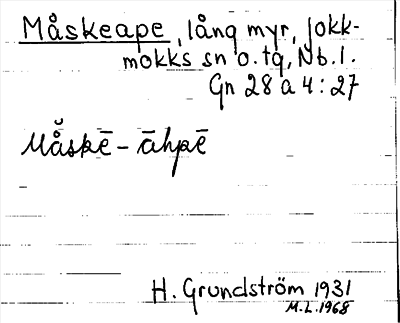 Måskeape, lång myr, Jokk-
mokks sn o. tg, Nb. l.
Gn 28 a 4:27
Måskē - āhpē
H. Grundström 1931
M.L. 1968